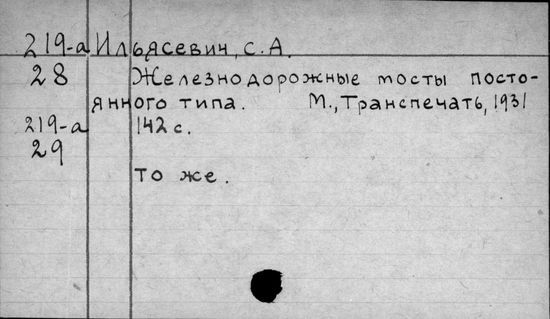 219-а Ильясевич, С.А.
28 Железнодорожные мосты посто-
янного типа. М., Транспечать, 1931
219-а 142 с.
29
То же.